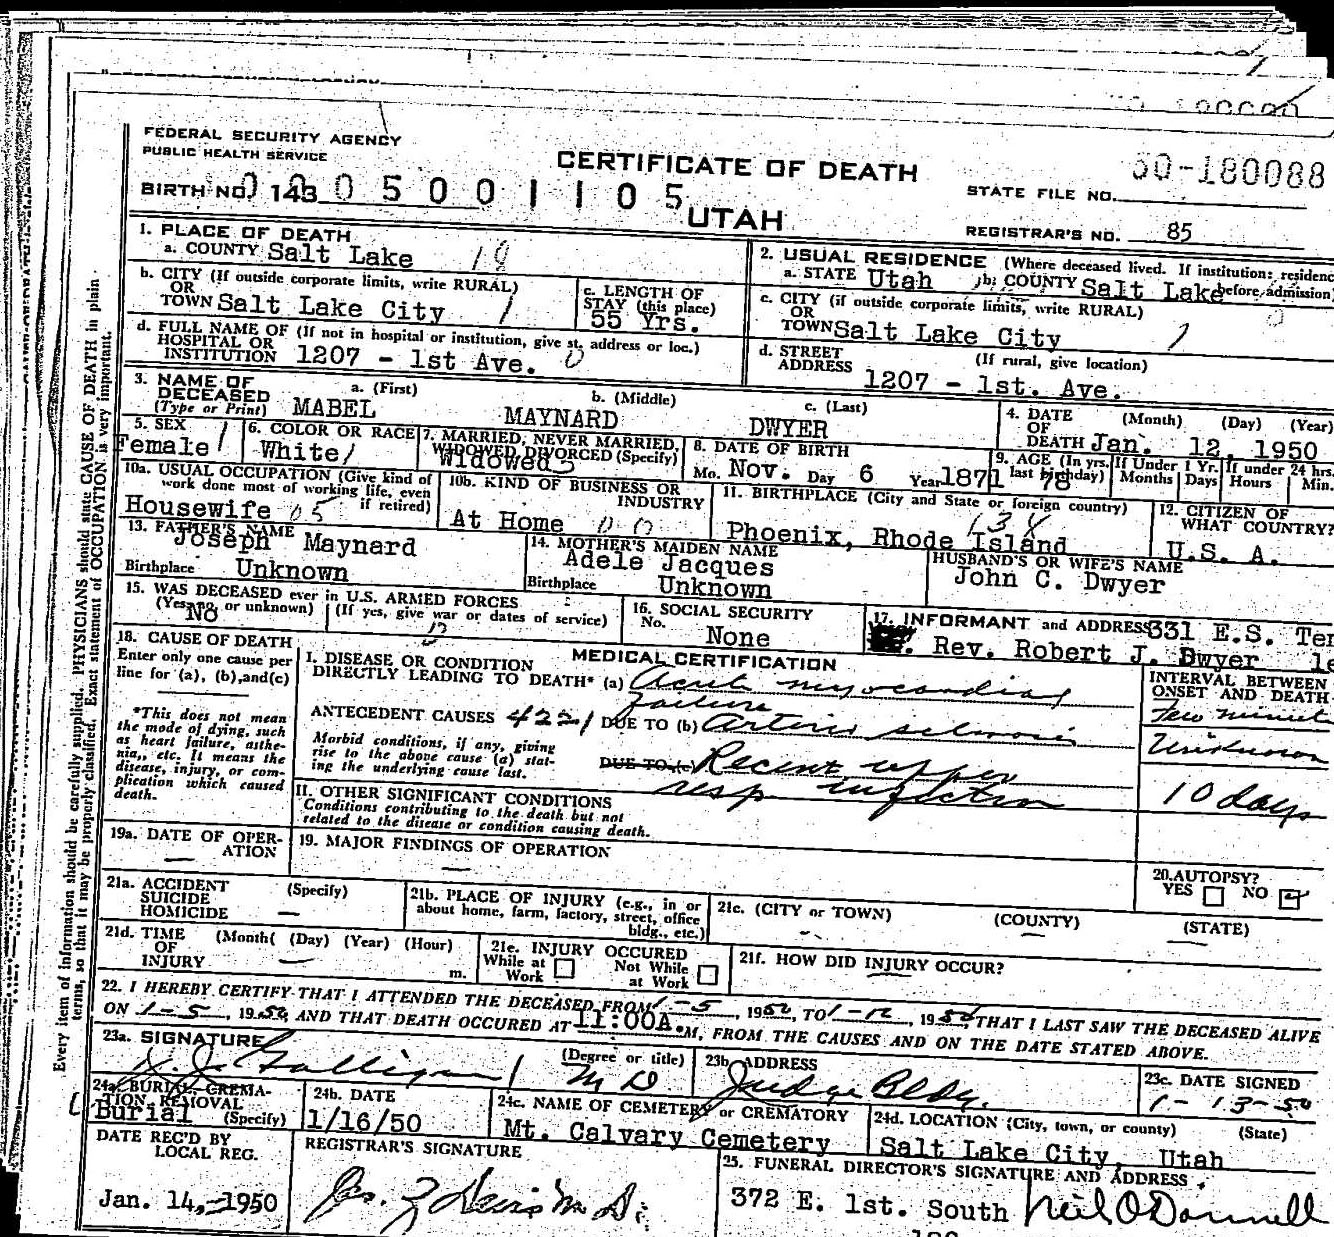 FEDERAL SECURITY AGENCY
PUBLIC HEALTH SERVICE
CERTIFICATE OF DEATH
UTAH
BIRTH NO. 143 0 5 0 0 1 1 0 5
STATE FILE NO. 50-180088
REGISTRAR'S NO. 85
1. PLACE OF DEATH
a. COUNTY Salt Lake
b. CITY (If outside corporate limits, write RURAL)
OR
TOWN Salt Lake City
c. LENGTH OF
STAY (this place)
55 Yrs.
d. FULL NAME OF (If not in hospital or institution, give st. address or loc.)
HOSPITAL OR
INSTITUTION 1207 - 1st Ave.
2. USUAL RESIDENCE (Where deceased lived. If institution: residence
before admission)
a. STATE Utah b. COUNTY Salt Lake
c. CITY (if outside corporate limits, write RURAL)
OR
TOWN Salt Lake City
d. STREET (If rural, give location)
ADDRESS 1207 - 1st. Ave.
3. NAME OF
DECEASED
(Type or Print)
a. (First) MABEL
b. (Middle) MAYNARD
c. (Last) DWYER
4. DATE (Month) (Day) (Year)
OF
DEATH Jan. 12, 1950
5. SEX
Female
6. COLOR OR RACE
White
7. MARRIED, NEVER MARRIED,
WIDOWED DIVORCED (Specify)
Widowed
8. DATE OF BIRTH
Mo. Nov. Day 6 Year 1871
9. AGE (In yrs. last birthday) 78
If Under 1 Yr. Months Days
If under 24 hrs. Hours Min.
10a. USUAL OCCUPATION (Give kind of
work done most of working life, even
if retired)
Housewife 05
10b. KIND OF BUSINESS OR
INDUSTRY
At Home
11. BIRTHPLACE (City and State or foreign country)
Phoenix, Rhode Island
12. CITIZEN OF
WHAT COUNTRY?
U.S. A.
13. FATHER'S NAME
Joseph Maynard
Birthplace Unknown
14. MOTHER'S MAIDEN NAME
Adele Jacques
Birthplace Unknown
HUSBAND'S OR WIFE'S NAME
John C. Dwyer
15. WAS DECEASED ever in U.S. ARMED FORCES
(Yes, no, or unknown) (If yes, give war or dates of service)
No
16. SOCIAL SECURITY
No.
None
17. INFORMANT and ADDRESS 331 E.S. Ten
Rev. Robert J. Dwyer le
18. CAUSE OF DEATH
Enter only one cause per
line for (a), (b), and (c)
*This does not mean
the mode of dying, such
as heart failure, asthe-
nia, etc. It means the
disease, injury, or com-
plication which caused
death.
MEDICAL CERTIFICATION
I. DISEASE OR CONDITION
DIRECTLY LEADING TO DEATH* (a) Acute myocardial
failure
ANTECEDENT CAUSES 4221 DUE TO (b) Arterio sclerosis
Morbid conditions, if any, giving
rise to the above cause (a) stat-
ing the underlying cause last.
DUE TO (c) Recent upper
resp infection
II. OTHER SIGNIFICANT CONDITIONS
Conditions contributing to the death but not
related to the disease or condition causing death.
INTERVAL BETWEEN
ONSET AND DEATH
Few minutes
Unknown
10 days
19a. DATE OF OPER-
ATION
—
19. MAJOR FINDINGS OF OPERATION
—
20. AUTOPSY?
YES NO
21a. ACCIDENT (Specify)
SUICIDE
HOMICIDE —
21b. PLACE OF INJURY (e.g., in or
about home, farm, factory, street, office
bldg., etc.)
21c. (CITY or TOWN) (COUNTY) (STATE)
21d. TIME (Month( (Day) (Year) (Hour)
OF
INJURY — m.
21e. INJURY OCCURED
While at Work
Not While at Work
21f. HOW DID INJURY OCCUR?
22. I HEREBY CERTIFY THAT I ATTENDED THE DECEASED FROM 1-5, 1950, TO 1-12, 1950, THAT I LAST SAW THE DECEASED ALIVE
ON 1-5, 1950, AND THAT DEATH OCCURED AT 11:00A.M, FROM THE CAUSES AND ON THE DATE STATED ABOVE.
23a. SIGNATURE (Degree or title)
Galligan M D.
23b. ADDRESS
Judge Bldg.
23c. DATE SIGNED
1-13-50
24a. BURIAL, CREMA-
TION, REMOVAL
(Specify)
Burial
24b. DATE
1/16/50
24c. NAME OF CEMETERY or CREMATORY
Mt. Calvary Cemetery
24d. LOCATION (City, town, or county) (State)
Salt Lake City, Utah
DATE REC'D BY
LOCAL REG.
Jan. 14, 1950
REGISTRAR'S SIGNATURE
25. FUNERAL DIRECTOR'S SIGNATURE AND ADDRESS
372 E. 1st. South Neil O'Donnell
Every item of information should be carefully supplied. PHYSICIANS should state CAUSE OF DEATH in plain
terms, so that it may be properly classified. Exact statement of OCCUPATION is very important.